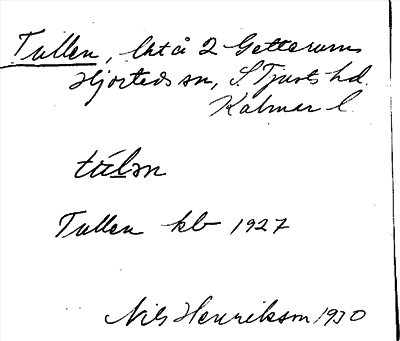 Tallen, lht å 2 Getterums
Hjorteds sn, S. Tjusts hd.
Kalmar l.
Tallen kb 1927
Nils Henrikson 1930